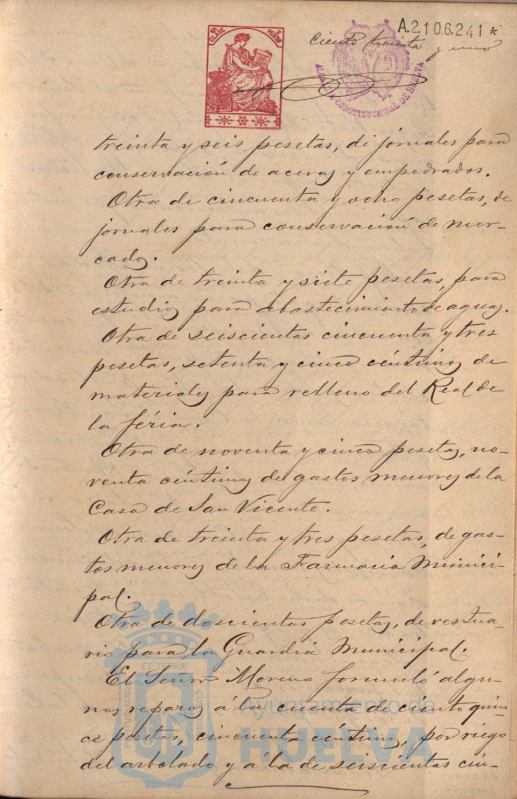 A.2106.241*
Ciento treinta y uno
ALCALDIA CONSTITUCIONAL DE HUELVA
treinta y seis pesetas, di jornales para
conservación de aceras y empedrados.
Otra de cincuenta y ocho pesetas, de
jornales para conservación de mer-
cado.
Otra de treinta y siete pesetas, para
estudios para abastecimiento de aguas.
Otra de seiscientas cincuenta y tres
pesetas, setenta y cinco céntimos de
materiales para relleno del Real de
la féria.
Otra de noventa y cinco pesetas, no-
venta céntimos de gastos menores de la
Casa de San Vicente.
Otra de treinta y tres pesetas, de gas-
tos menores de la Farmacia Munici-
pal.
Otra de doscientas pesetas, de vestua-
rio para la Guardia Municipal.
El Señor Moreno formuló algu-
nos reparos á las cuenta de ciento quin-
ce pesetas, cincuenta céntimos, por riego
del arbolado y a la de seiscientas cin-
Ayuntamiento de
HUELVA